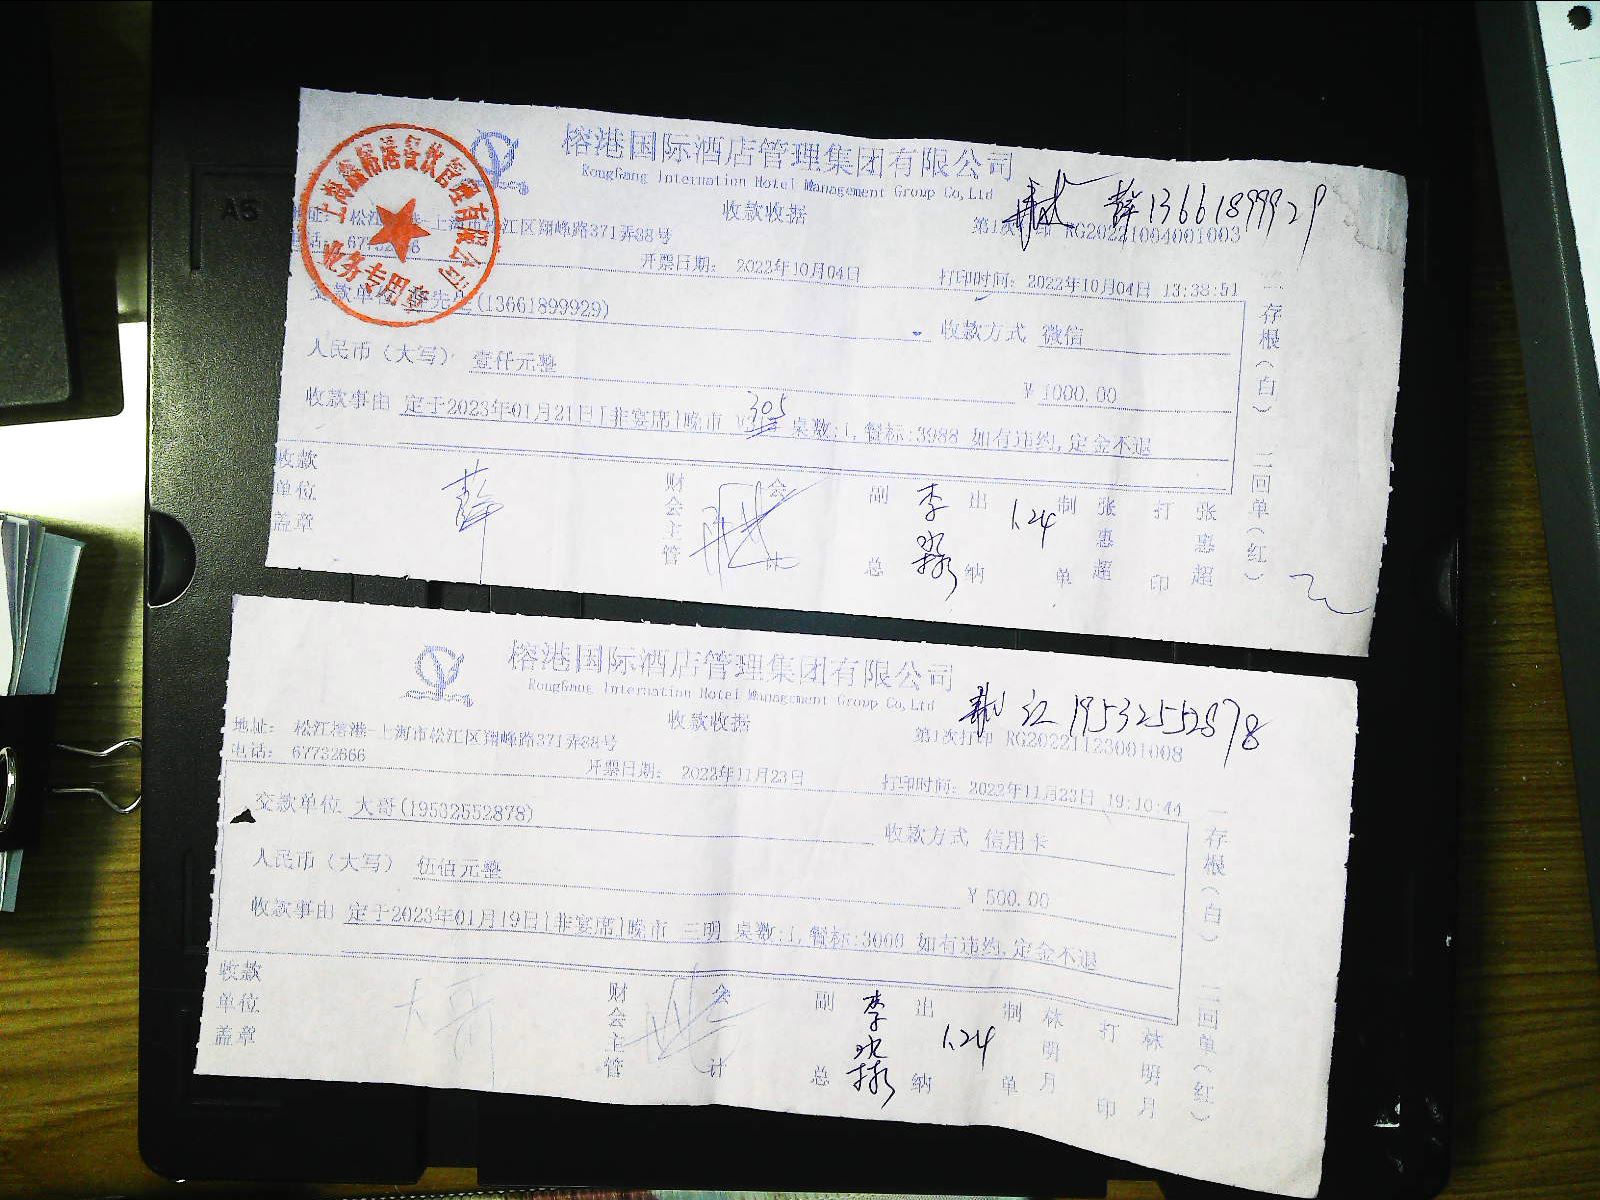 榕港国际酒店管理集团有限公司
RongGang Internation Hotel Management Group Co,Ltd
收款收据
薛13661899929
上海鑫榕港餐饮管理有限公司
业务专用章
地址: 松江榕港-上海市松江区翔峰路371弄88号
第1次打印 RG20221004001003
电话: 67732666
开票日期: 2022年10月04日
打印时间: 2022年10月04日 13:38:51
交款单位 先生(13661899929)
收款方式 微信
人民币（大写） 壹仟元整
¥ 1000.00
305
收款事由 定于2023年01月21日[非宴席]晚市 桌数:1,餐标:3988 如有违约,定金不退
一存根（白） 二回单（红）
收款单位盖章 薛
财会主管
会计
副总 李
出纳 1.24
制单 张惠超
打印 张惠超
榕港国际酒店管理集团有限公司
RongGang Internation Hotel Management Group Co,Ltd
收款收据
江 19532552878
地址: 松江榕港-上海市松江区翔峰路371弄88号
第1次打印 RG20221123001008
电话: 67732666
开票日期: 2022年11月23日
打印时间: 2022年11月23日 19:10:44
交款单位 大哥(19532552878)
收款方式 信用卡
人民币（大写） 伍佰元整
¥ 500.00
收款事由 定于2023年01月19日[非宴席]晚市 三明 桌数:1,餐标:3000 如有违约,定金不退
一存根（白） 二回单（红）
收款单位盖章 大哥
财会主管
会计
副总 李
出纳 1.24
制单 林明月
打印 林明月
A5